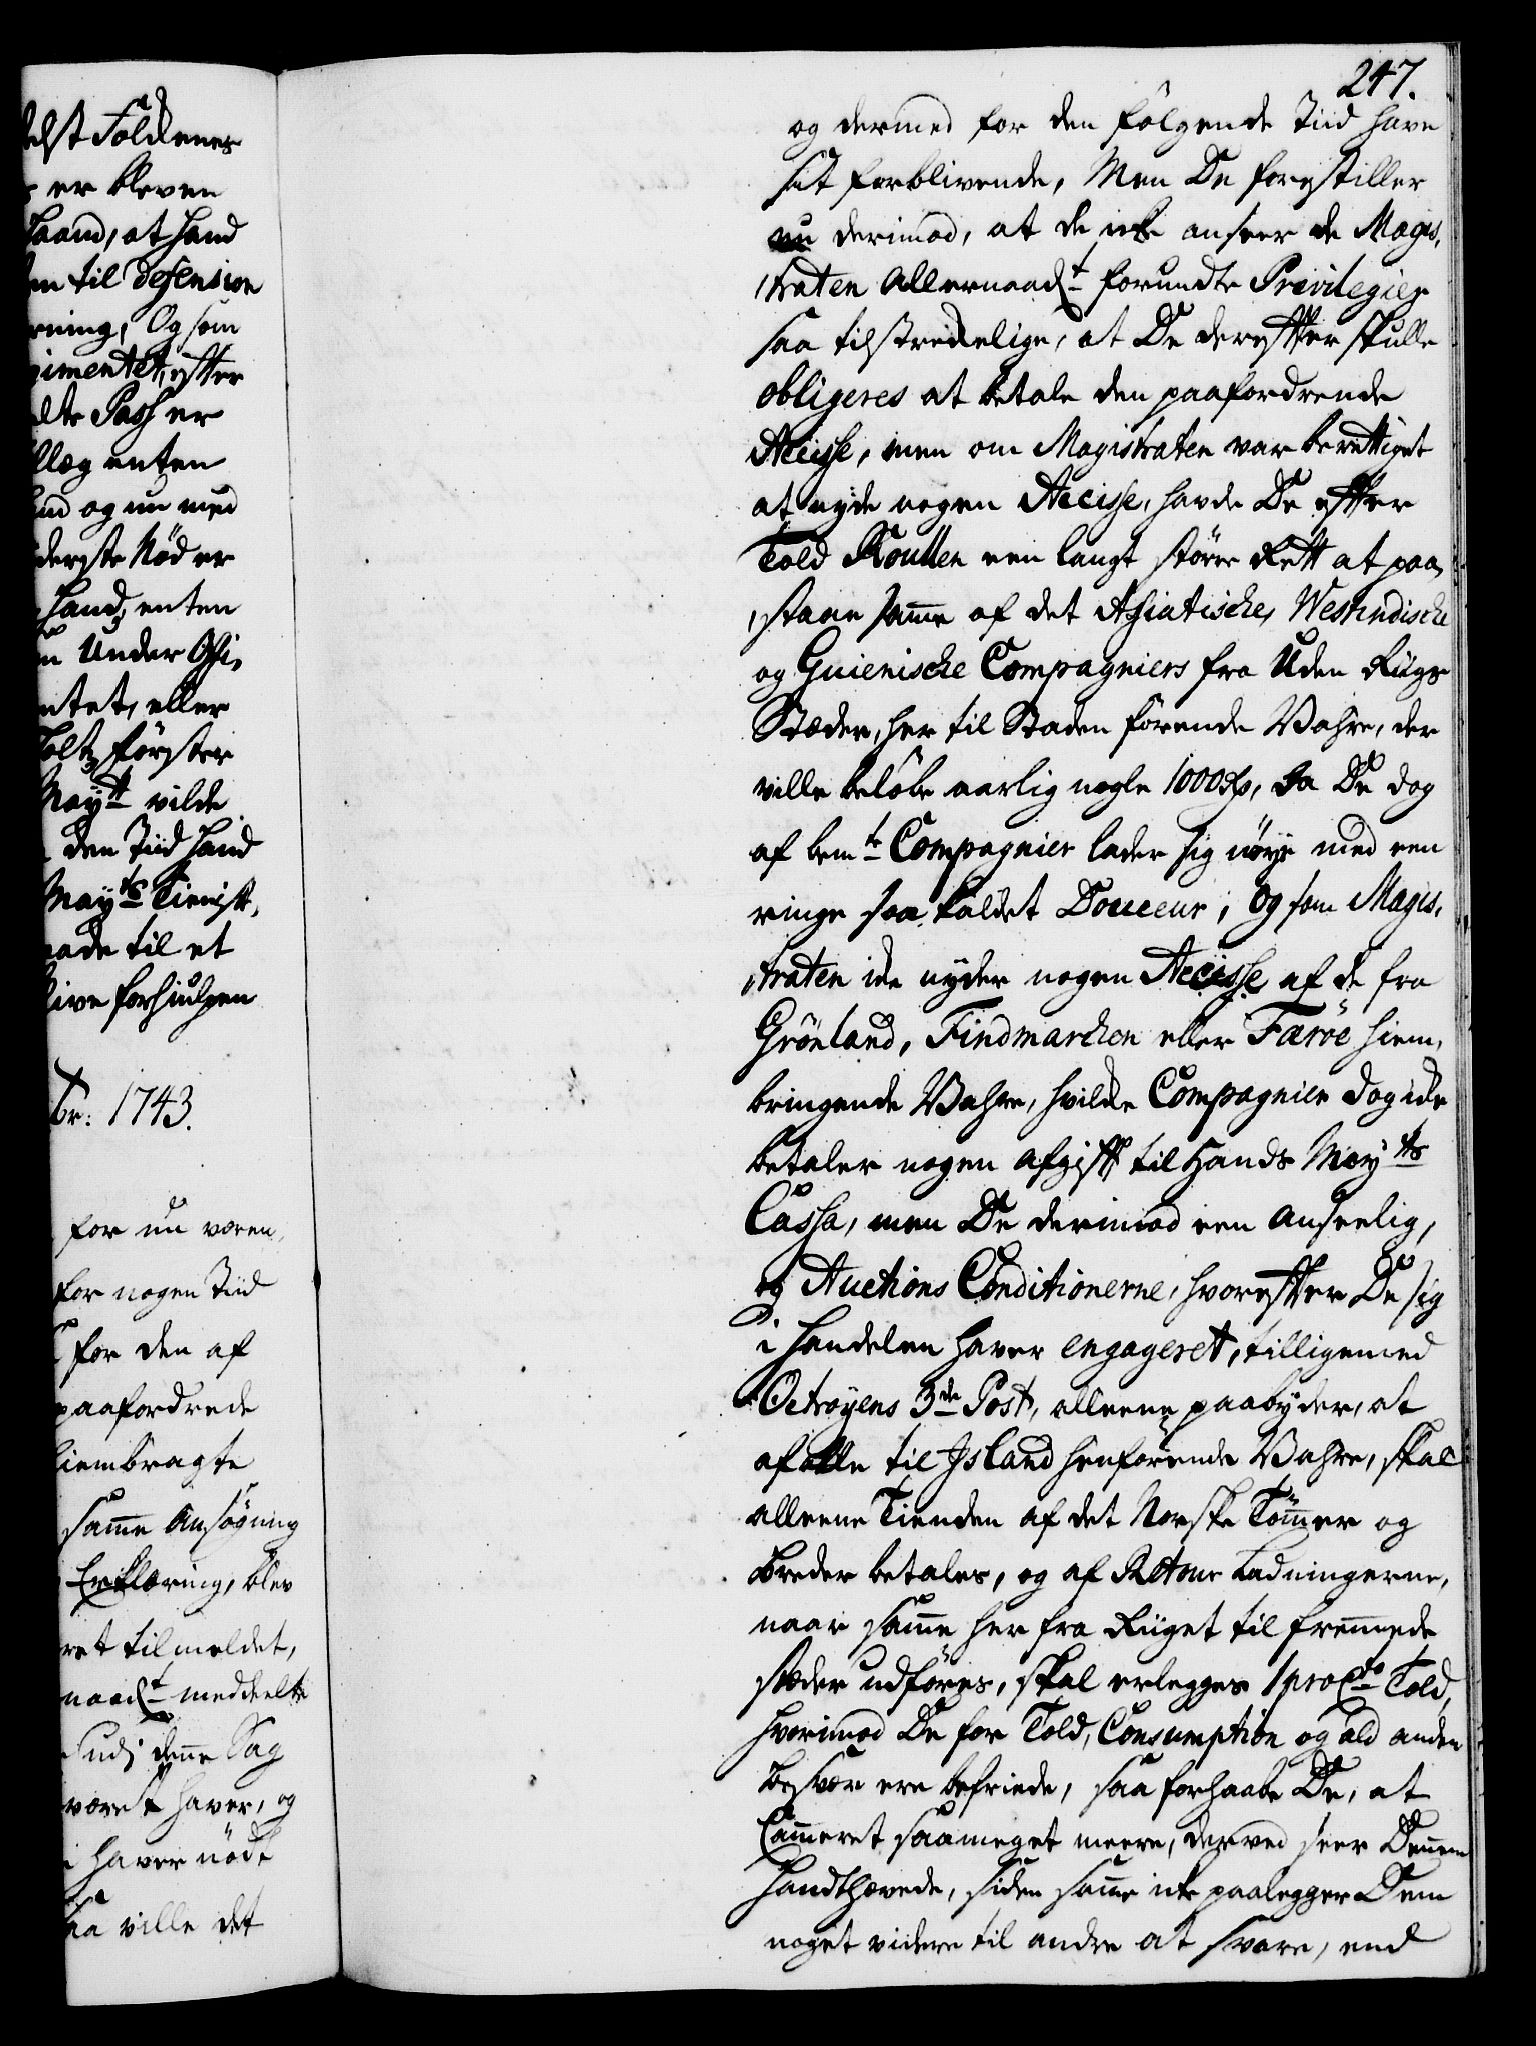 247.
og dermed for den følgende Tiid have
sit forblivende, Men De forestiller
nu derimod, at de icke anseer de Magi-
straten Allernaadt forundte Privilegier
saa tilstreckelige, at De derefter skulle
obligeres at betale den paafordrende
Accisse, men om Magistraten var berettiget
at nyde nogen Accisse, havde De efter
Told Roullen een langt større Rett at paa-
staae samme af det Asiatische, Westindische
og Guienische Compagniers fra Uden Riigs
Stæder, her til Staden førende Vahre, der
ville beløbe aarlig nogle 1000 Rdr, Da De dog
af bemte Compagnier lader sig nøye med een
ringe saa kaldet Douceur; Og som Magi-
straten icke nyder nogen Accisse af de fra
Grönland, Findmarchen eller Færöe hiem-
bringende Vahre, hvilcke Compagnier dog icke
betaler nogen Afgift til Hands Mayts
Cassa, men De derimod een anseelig,
og Auctions Conditionerne, hvorefter De sig
i Handelen haver engageret, tilligemed
Octroyens 3de Post, alleene paabyder, at
af alle til Island henførende Vahre, skal
alleene Tienden af det Norske Tømmer og
Breder betales, og af Retour Ladningerne,
naar samme her fra Riiget til fremmede
stæder udføres, skal erlegges 1 pro Cto Told,
hvorimod De for Told, Consumption og ald anden
besvær ere befriede, saa forhaabe De, at
Cammeret saameget meere, derved seer Dennem
handthævede, siden samme icke paalegger Dem
noget videre til andre at svare, end
Foldenes
er bleven
at hand
til defension
Og som
efter
Pass er
enten
og nu med
Nöd er
hand, enten
Under Offi-
eller
förster
Mayts vilde
den Tiid hand
Mayts Tienist,
til et
forhiulpen
br: 1743.
for nu væren
for nogen Tiid
for den af
paafordrede
hiembragte
samme Ansøgning
Erklæring, blev
tilmeldet,
meddeelte
udi denne Sag
været haver, og
haver nödt
ville det